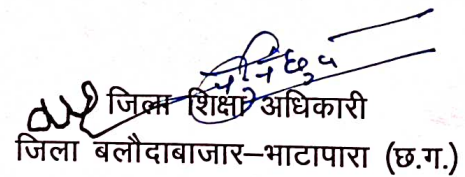 जिला शिक्षा अधिकारी
जिला बलौदाबाजार–भाटापारा (छ.ग.)